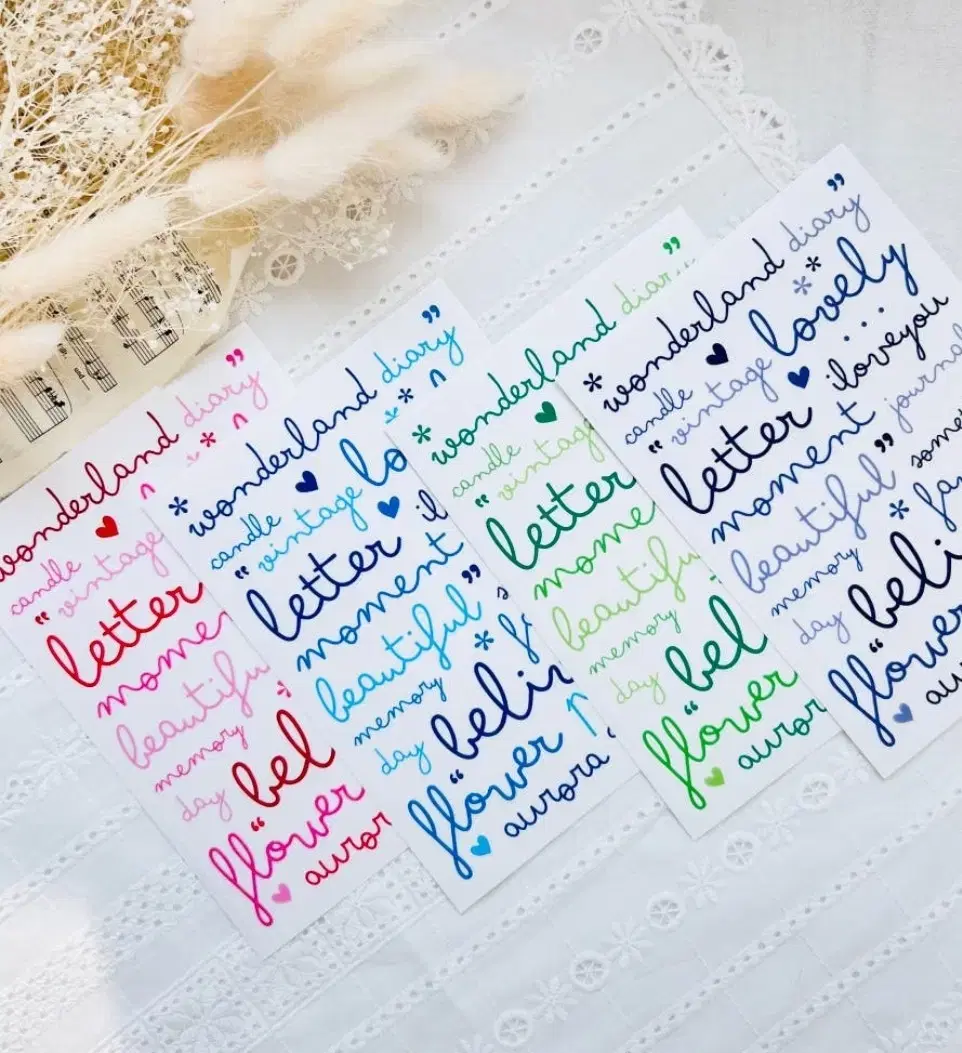 wonderland diary ”
candle
“ vintage
letter
mome
beautifu
memory
day
“ bel
flower
auror
* wonderland diary ”
candle lo
“ vintage
letter il
moment
beautiful ”
memory
day
“ beli
flower
aurora
* wonderland diar ”
candle
“ vintage
letter
mome
beautifu
memory
day
“ bel
flower
auror
* wonderland diary ”
candle lovely
“ vintage
letter iloveyou
moment journal
beautiful ” some
memory fa
day
“ beli
flower
au